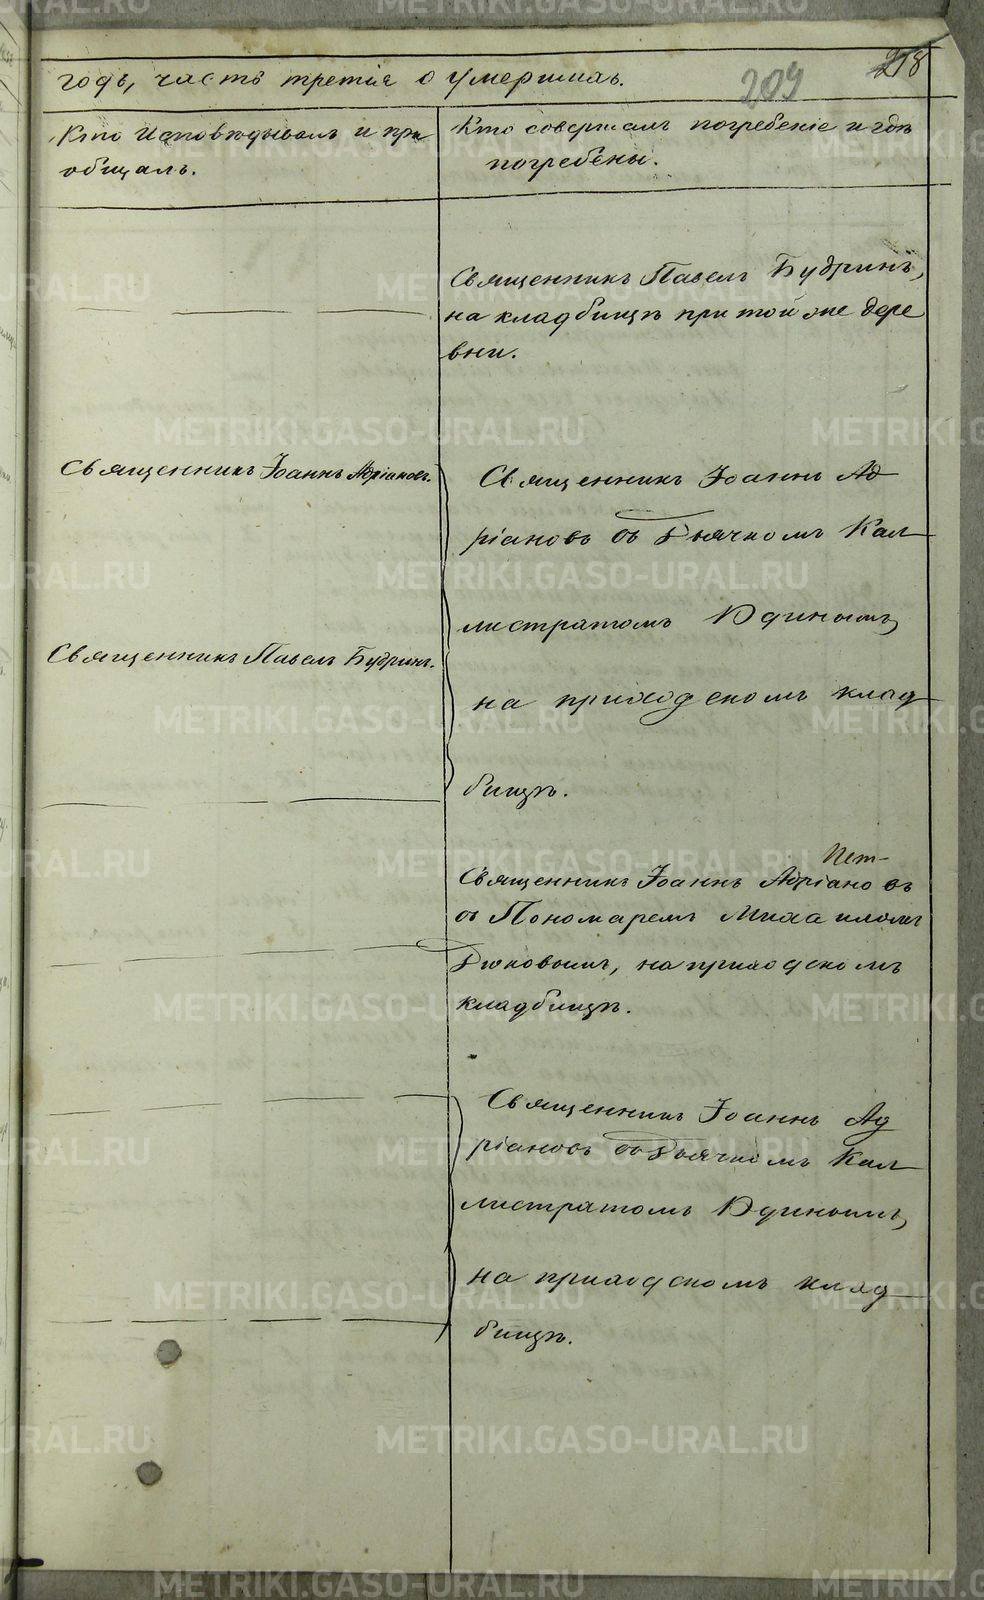 годъ, часть третія о умершихъ.
209
218
Кто исповѣдывалъ и прі
общалъ.
Кто совершалъ погребеніе и гдѣ
погребены.
Священникъ Павелъ Будринъ,
на кладбищѣ при той же дере
вни.
Священникъ Іоаннъ Адріановъ.
Священникъ Іоаннъ Ад
ріановъ съ Дьячкомъ Кал
листратомъ Юдинымъ,
Священникъ Павелъ Будринъ.
на приходскомъ клад
бищѣ.
Священникъ Іоаннъ Адріановъ
съ Пономаремъ Михаиломъ
на приходскомъ
кладбищѣ.
Священникъ Іоаннъ Ад
ріановъ съ Дьячкомъ Кал
листратомъ Юдинымъ,
на приходскомъ клад
бищѣ.
METRIKI.GASO-URAL.RU